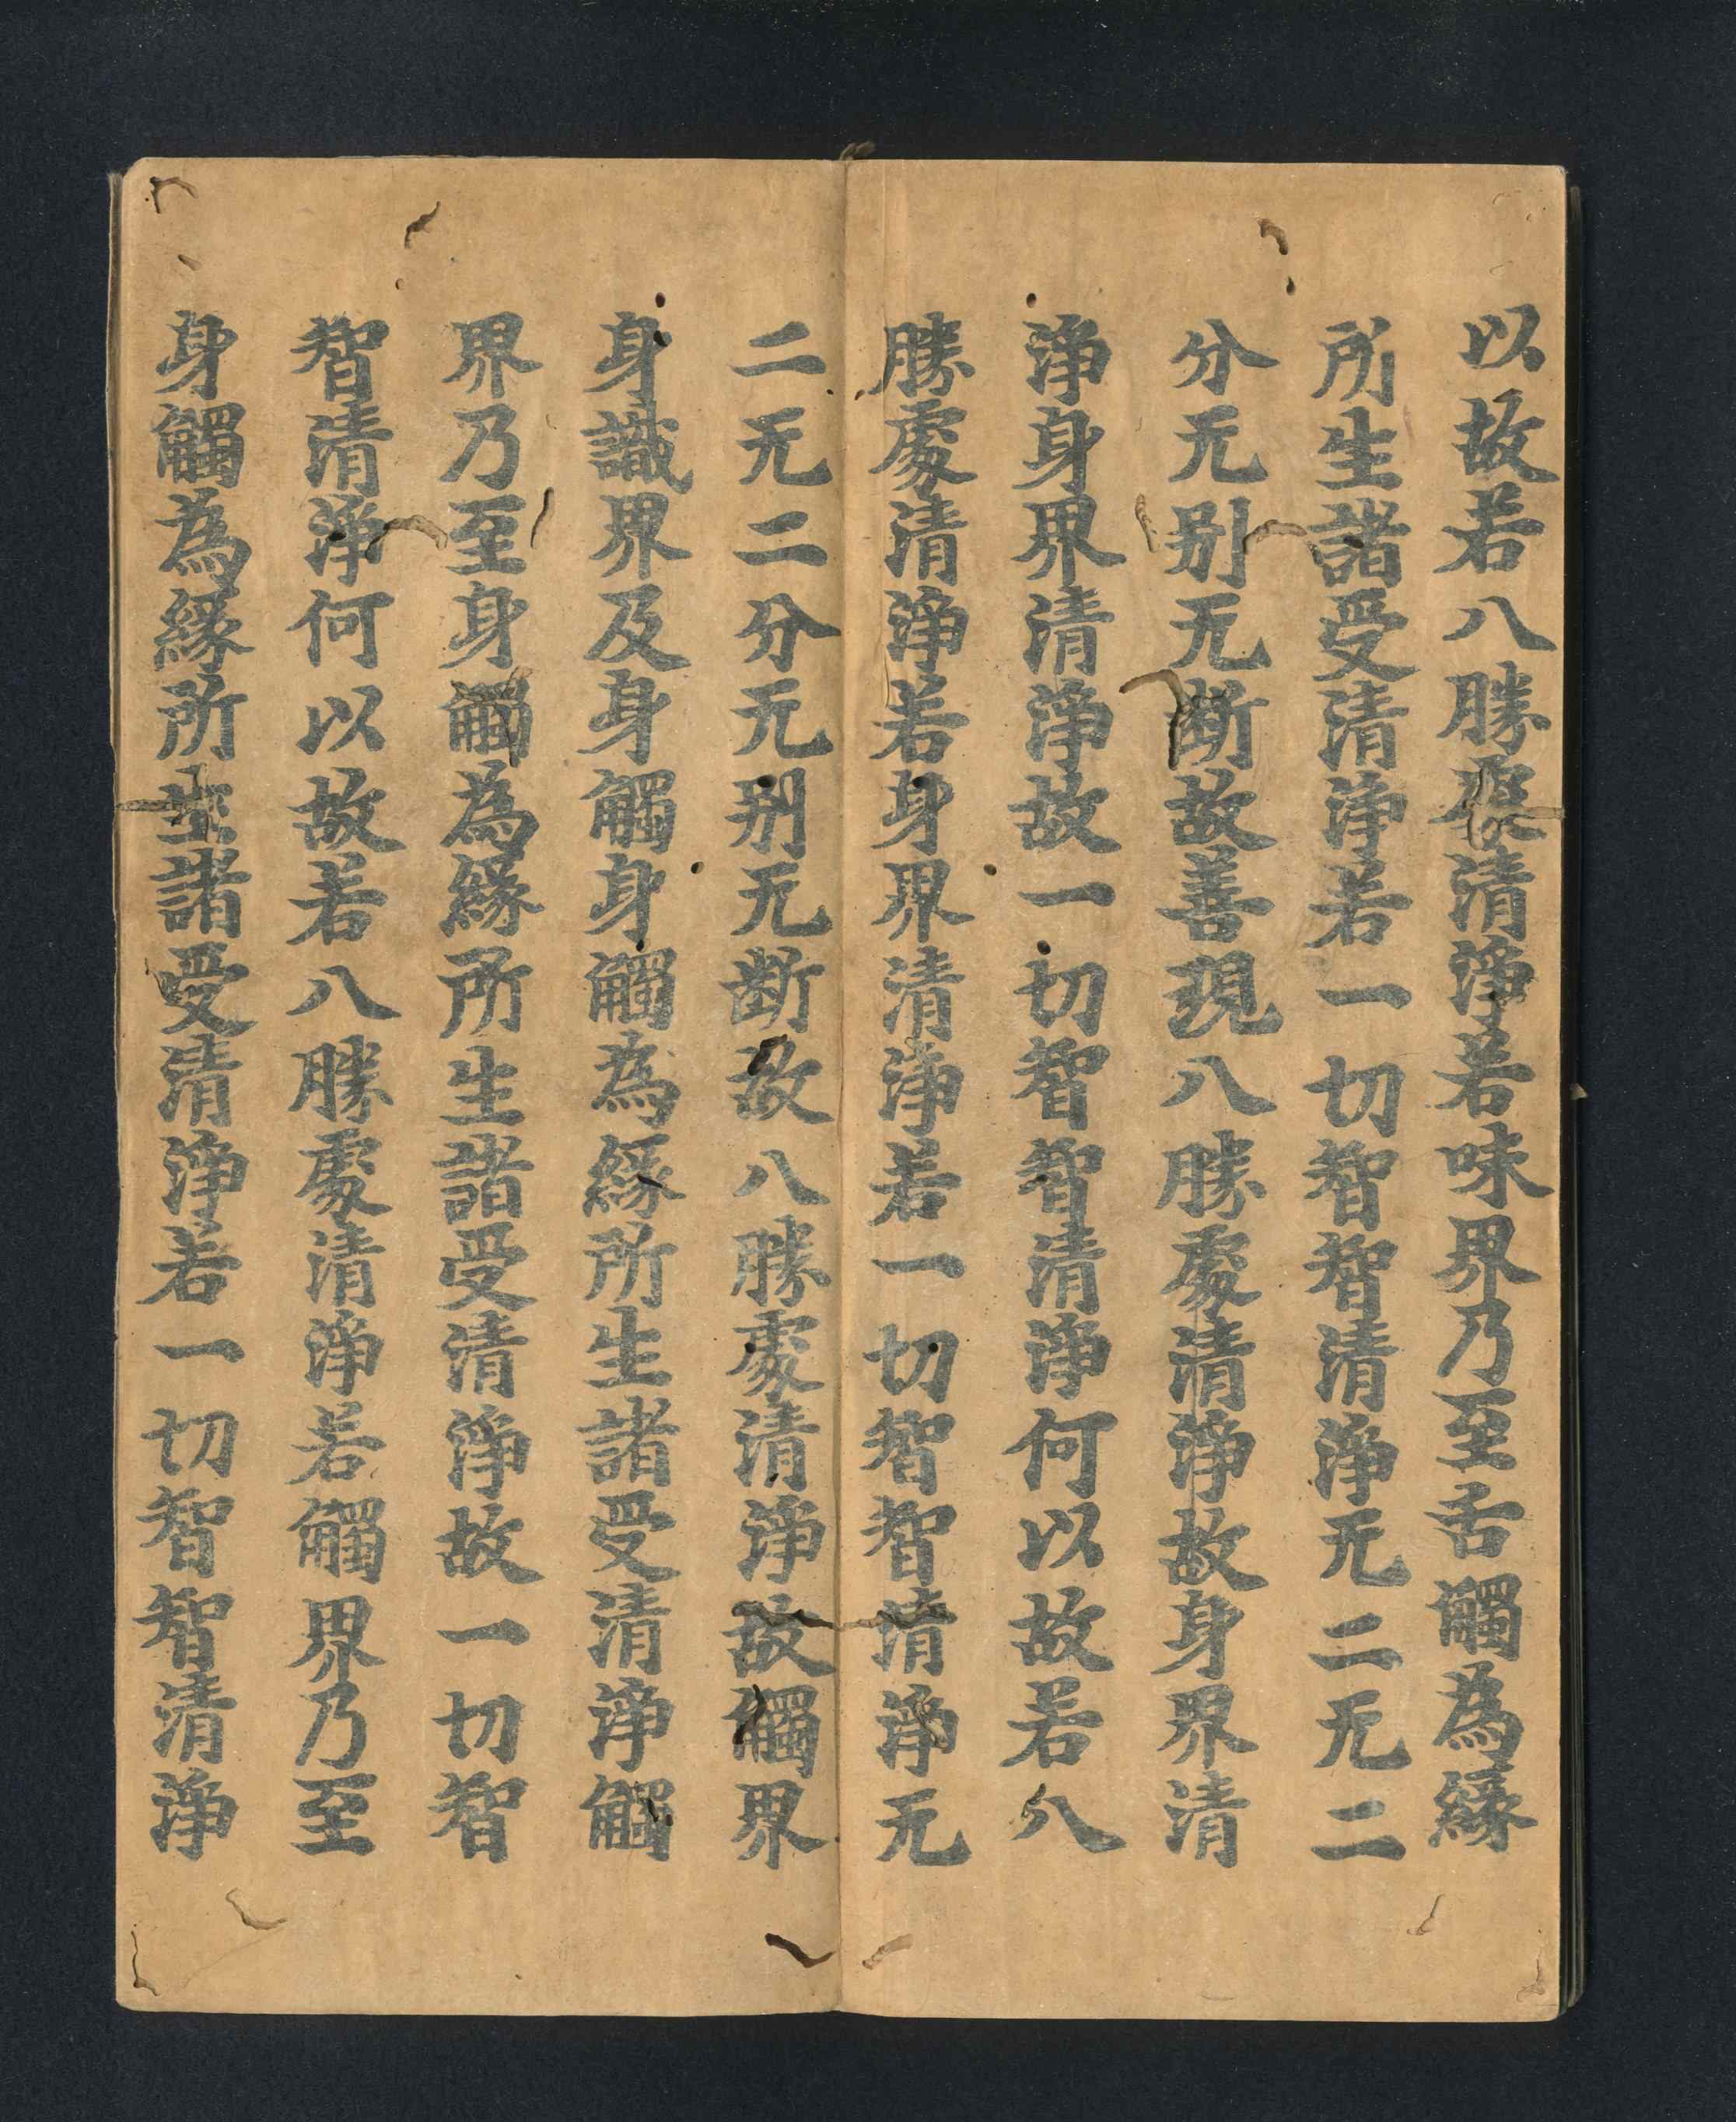 以故若八勝處清淨若味界乃至舌觸為緣
所生諸受清淨若一切智智清淨无二无二
分无別无断故善現八勝處清淨故身界清
淨身界清淨故一切智智清淨何以故若八
勝處清淨若身界清淨若一切智智清淨无
二无二分无別无斷故八勝處清淨故觸界
身識界及身觸身觸為緣所生諸受清淨觸
界乃至身觸為緣所生諸受清淨故一切智
智清淨何以故若八勝處清淨若觸界乃至
身觸為緣所生諸受清淨若一切智智清淨